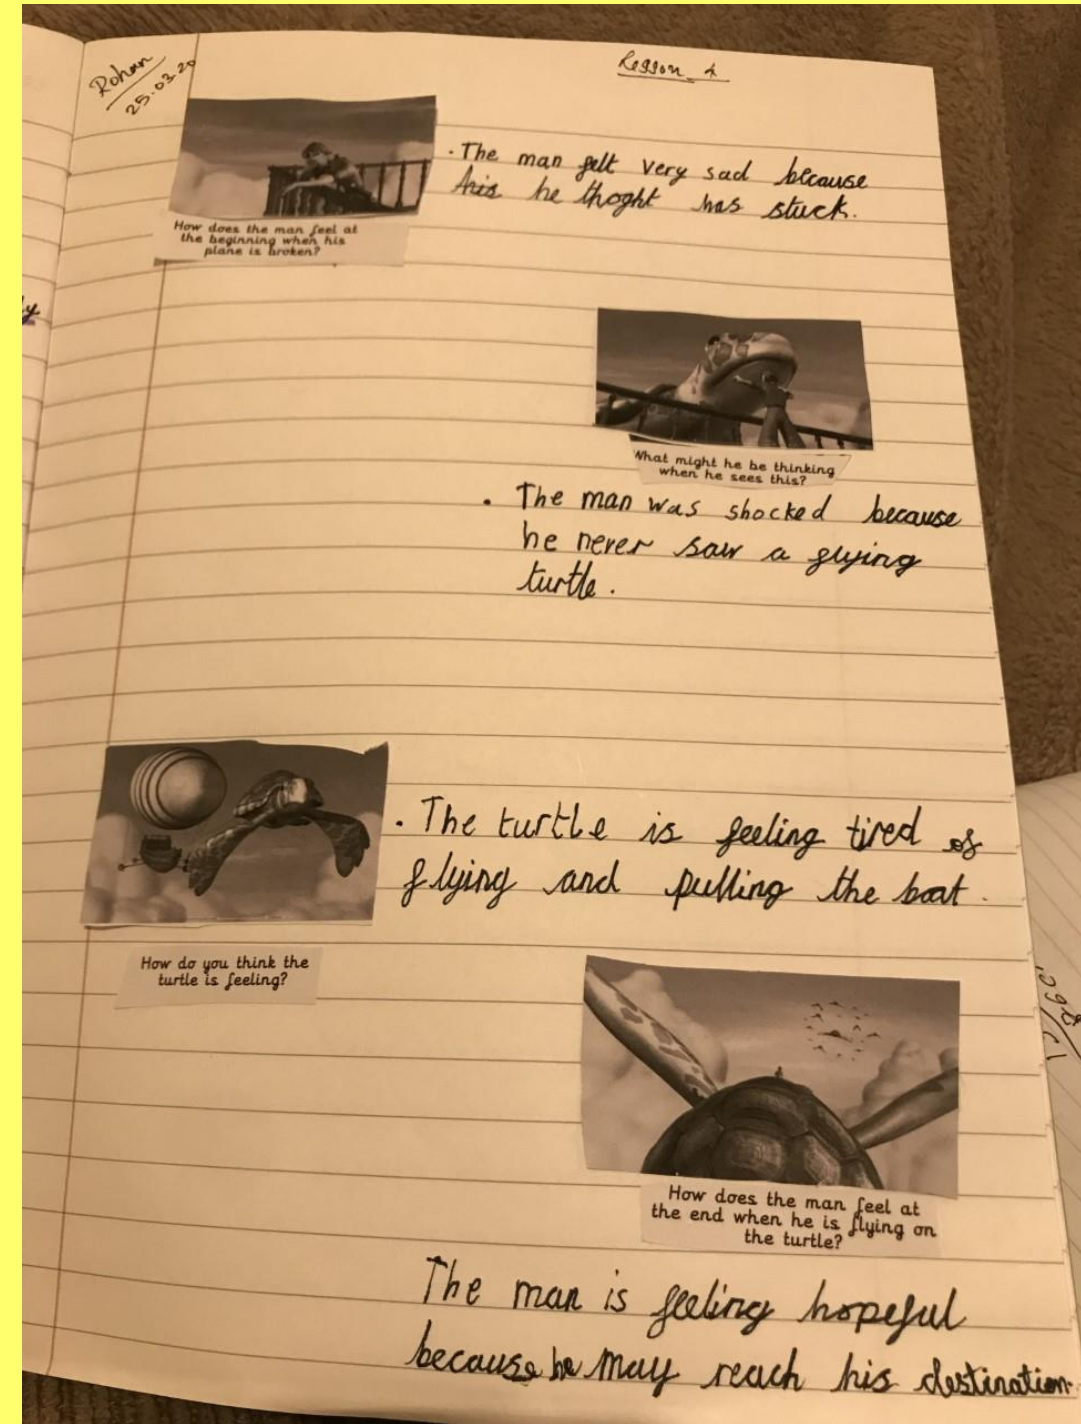 Rohan
25.03.20
Lesson 4
. The man felt very sad because
his he thoght was stuck.
How does the man feel at
the beginning when his
plane is broken?
y
What might he be thinking
when he sees this?
. The man was shocked because
he never saw a flying
turtle.
. The turtle is feeling tired of
flying and pulling the boat.
How do you think the
turtle is feeling?
How does the man feel at
the end when he is flying on
the turtle?
The man is feeling hopeful
because he may reach his destination.